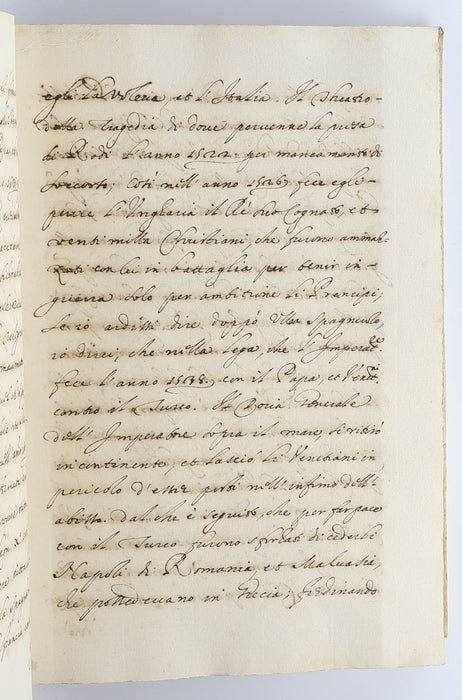 egli la voleria, et l'Italia. Il Theatro
della Tragedia di dove pervenne la presa
di Rodi l'anno 1522. per mancamento di
soccorso; Così nell'anno 1526 fece egli
perire l'Ungheria il Rè suo Cognato, et
venti milla Christiani, che furono ammaz-
zati con lui in battaglia per venir in
guerra solo per ambitione di Prencipi;
Se io ardissi dire doppò una spagnuolo,
io direi, che nella lega, che l'Imperat.re
fece l'anno 1538. con il Papa, et Venet.ni
contro il Turco. Il Doria Generale
dell'Imperatore sopra il mare, si ritirò
incontinente, et lasciò li Venetiani in
pericolo d'esser persi nell'infimo dell'
abisso. dal che è seguito, che per far pace
con il Turco furono sforzati di cederli
Napoli di Romania, et Malvasia,
che possedevano in Grecia; Ferdinando